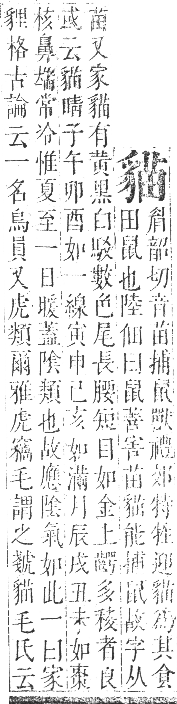 貓
眉韶切音苗捕鼠獸禮郊特牲迎貓為其食
田鼠也陸佃曰鼠善害苗貓能捕鼠故字从
苗又家貓有黃黑白駁數色尾長腰短目如金上齶多稜者良
或云貓睛子午卯酉如一線寅申巳亥如滿月辰戌丑未如棗
核鼻端常冷惟夏至一日暖蓋陰類也故應陰氣如此一曰家
貍格古論云一名烏員又虎類爾雅虎竊毛謂之虦貓毛氏云